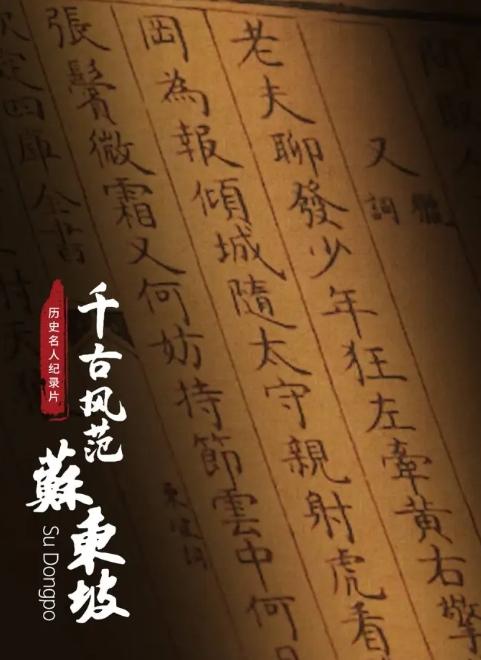 又
獵詞
老夫聊發少年狂左牽黃右擎
岡為報傾城隨太守親射虎看
張鬢微霜又何妨持節雲中何
欽定四庫全書
東坡詞
历史名人纪录片
千古风范
蘇東坡
Su Dongpo